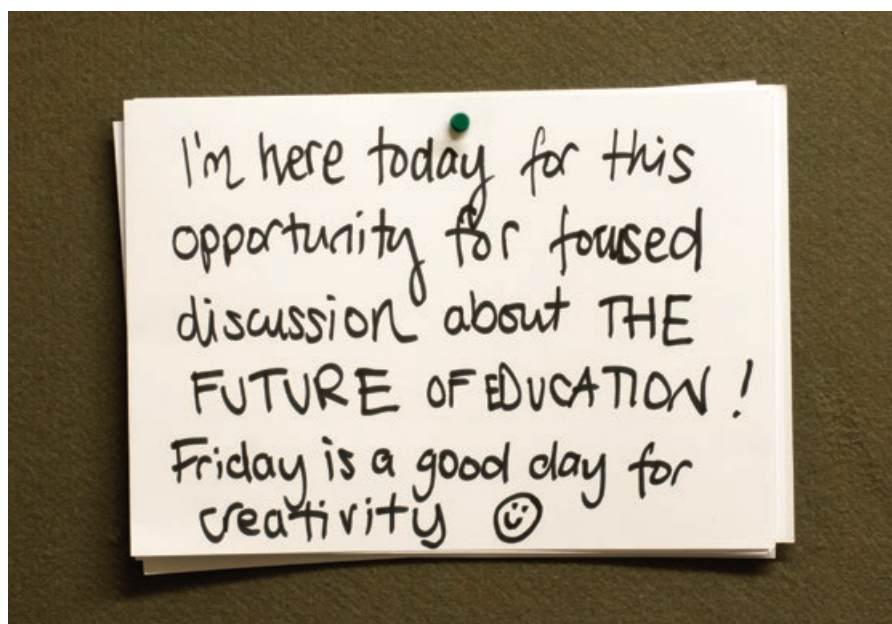 I'm here today for this
opportunity for focused
discussion about THE
FUTURE OF EDUCATION!
Friday is a good day for
creativity ☺